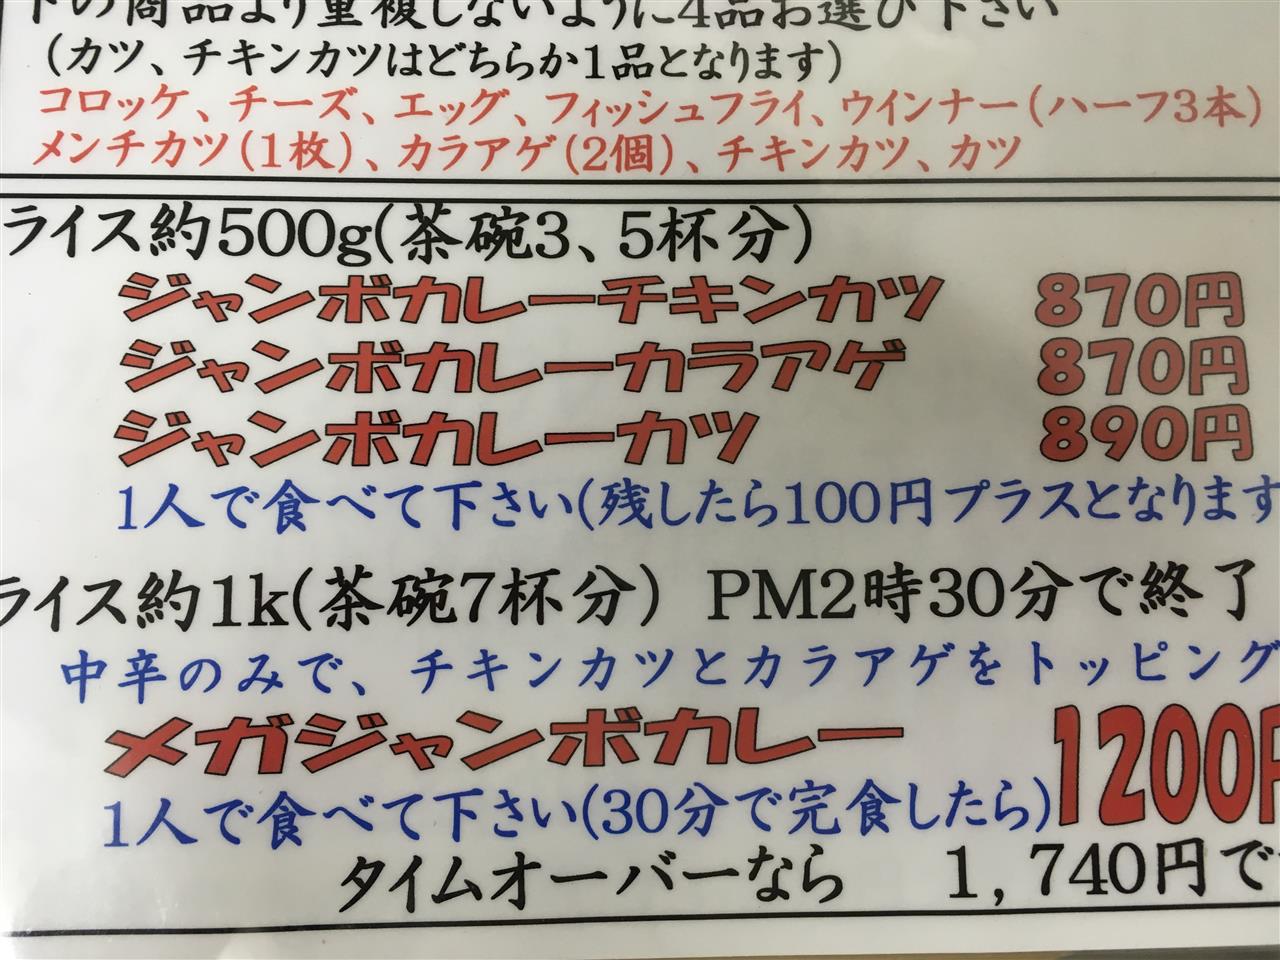 の商品より重複しないように4品お選び下さい
（カツ、チキンカツはどちらか1品となります）
コロッケ、チーズ、エッグ、フィッシュフライ、ウインナー（ハーフ3本）
メンチカツ（1枚）、カラアゲ（2個）、チキンカツ、カツ
ライス約500g(茶碗3、5杯分）
ジャンボカレーチキンカツ 870円
ジャンボカレーカラアゲ 870円
ジャンボカレーカツ 890円
1人で食べて下さい（残したら100円プラスとなります
ライス約1k(茶碗7杯分） PM2時30分で終了
中辛のみで、チキンカツとカラアゲをトッピング
メガジャンボカレー 1200円
1人で食べて下さい（30分で完食したら）
タイムオーバーなら 1,740円で